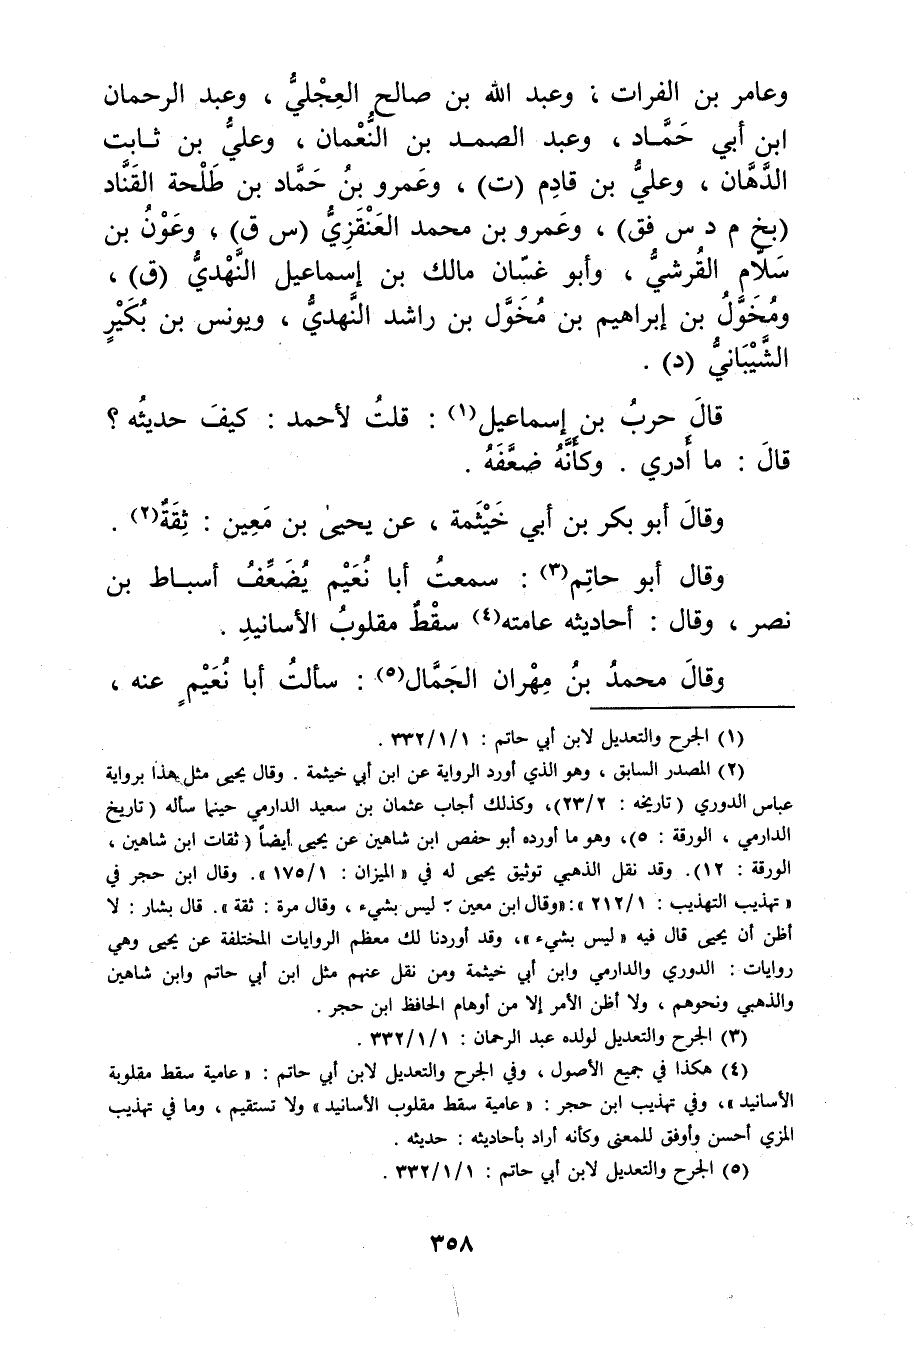 وعامر بن الفرات ، وعبد الله بن صالحٍ العِجْليُّ ، وعبد الرحمان
ابن أبي حَمَّـاد ، وعبد الصمـد بن النُّعْمان ، وعليُّ بن ثـابت
الدَّهَّان ، وعليُّ بن قادِم (ت) ، وعَمرو بنُ حَمَّاد بن طَلْحة القَنَّاد
(بخ م د س فق) ، وعَمرو بن محمد العَنْقَزِيُّ (س ق) ، وعَوْنُ بن
سَلَّام القُرشيُّ ، وأبو غسّان مالك بن إسماعيل النَّهْديُّ (ق) ،
ومُخَوَّلُ بن إبراهيم بن مُخَوَّل بن راشد النَّهديُّ ، ويونس بن بُكَيْرٍ
الشَّيْبَانيُّ (د) .
قالَ حربُ بن إسماعيل(١) : قلتُ لأحمد : كيفَ حديثُه ؟
قالَ : ما أَدري . وكأَنَّهُ ضعَّفَهُ .
وقالَ أبو بكر بن أبي خَيْثَمة ، عن يحيىٰ بن مَعِين : ثِقَةٌ(٢) .
وقال أبو حاتِم(٣) : سمعتُ أبا نُعَيْم يُضَعِّفُ أسبـاط بن
نصر ، وقال : أحاديثه عامته(٤) سقْطٌ مقلوبُ الأسانيدِ .
وقالَ محمدُ بنُ مِهْران الجَمَّال(٥) : سألتُ أبا نُعَيْمٍ عنه ،
(١) الجرح والتعديل لابن أبي حاتم : ٣٣٢/١/١ .
(٢) المصدر السابق ، وهو الذي أورد الرواية عن ابن أبي خيثمة . وقال يحيى مثل هذا برواية
عباس الدوري ( تاريخه : ٢٣/٢)، وكذلك أجاب عثمان بن سعيد الدارمي حينما سأله ( تاريخ
الدارمي ، الورقة : ٥)، وهو ما أورده أبو حفص ابن شاهين عن يحيى أيضاً ( ثقات ابن شاهين ،
الورقة : ١٢). وقد نقل الذهبي توثيق يحيى له في « الميزان : ١٧٥/١ ». وقال ابن حجر في
« تهذيب التهذيب : ٢١٢/١ »:«وقال ابن معين : ليس بشيء ، وقال مرة : ثقة ». قال بشار : لا
أظن أن يحيى قال فيه « ليس بشيء »، وقد أوردنا لك معظم الروايات المختلفة عن يحيى وهي
روايات : الدوري والدارمي وابن أبي خيثمة ومن نقل عنهم مثل ابن أبي حاتم وابن شاهين
والذهبي ونحوهم ، ولا أظن الأمر إلا من أوهام الحافظ ابن حجر .
(٣) الجرح والتعديل لولده عبد الرحمان : ٣٣٢/١/١ .
(٤) هكذا في جميع الأصول ، وفي الجرح والتعديل لابن أبي حاتم : « عامية سقط مقلوبة
الأسانيد »، وفي تهذيب ابن حجر : « عامية سقط مقلوب الأسانيد » ولا تستقيم ، وما في تهذيب
المزي أحسن وأوفق للمعنى وكأنه أراد بأحاديثه : حديثه .
(٥) الجرح والتعديل لابن أبي حاتم : ٣٣٢/١/١ .
٣٥٨